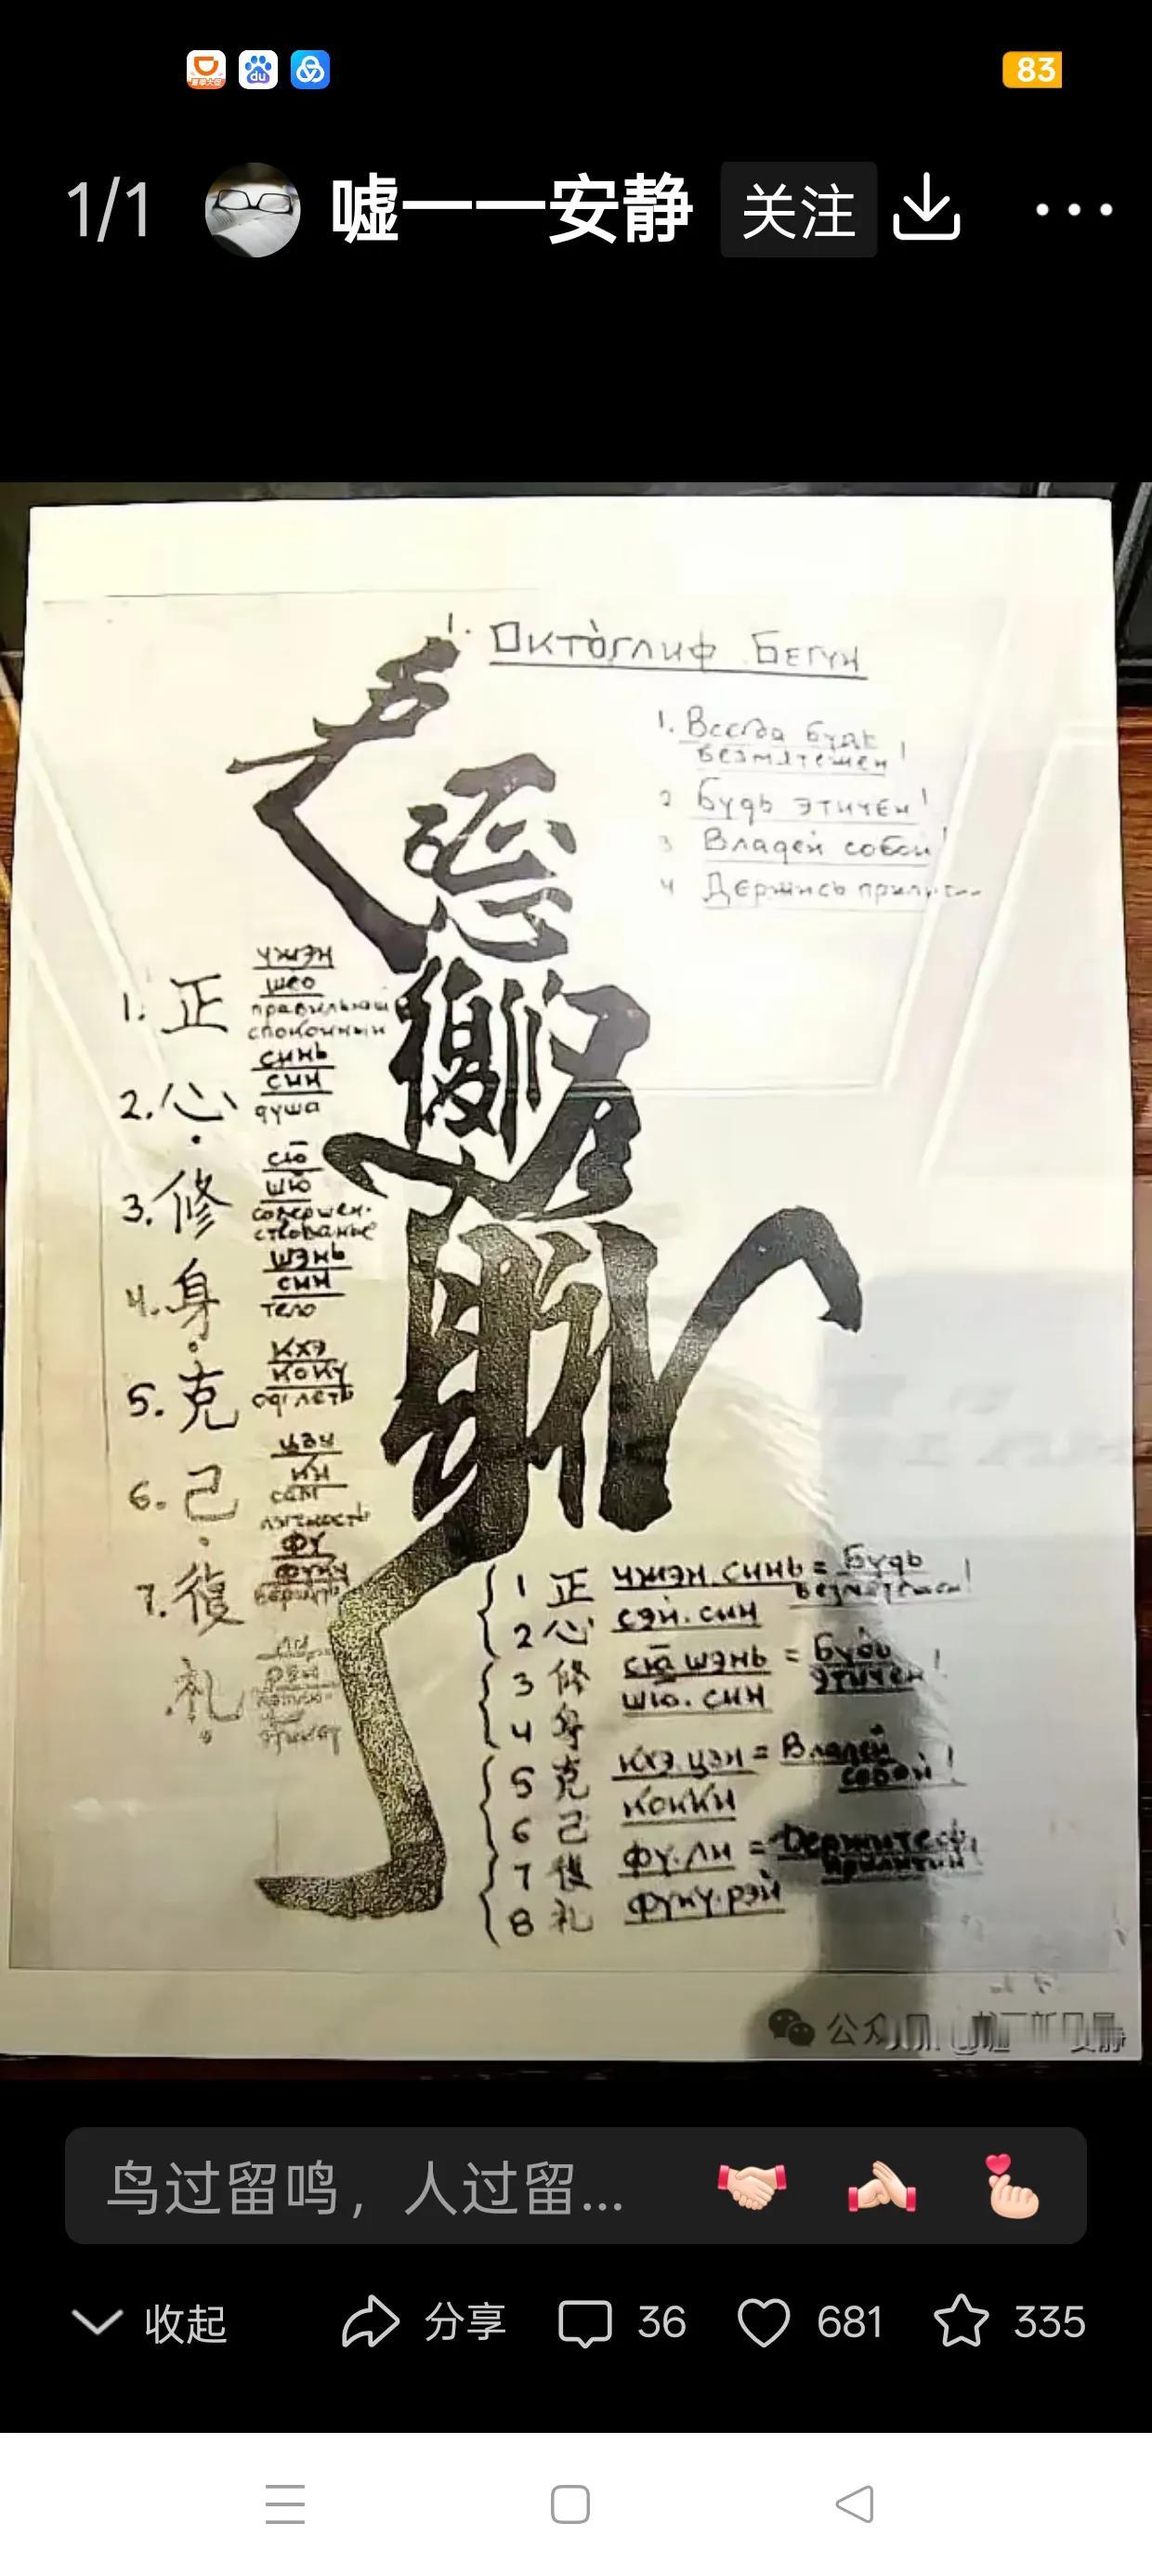 83
1/1 嘘一一安静 关注
1. Октоглиф Бегун
1. Всегда будь
безмятежен!
2 Будь этичен!
3 Владей собой!
4 Держись
1. 正 чжэн
шёо
спокойный
2. 心 синь
син
душа
3. 修 сю
шю
совершен-
ствованье
4. 身 шэнь
син
тело
5. 克 кхэ
коку
6. 己 цзи
ки
сам
7. 復 фу
фуку
礼
1 正 чжэн.синь = Будь
безмятежен!
2 心 сэй.син
3 修 сю шэнь = Будь
этичен!
шю.син
4 身
5 克 кхэ.цзи = Владей
собой!
6 己 кокки
7 復 фу.ли =
8 礼 фуку.рэй
公众
鸟过留鸣，人过留...
收起 分享 36 681 335